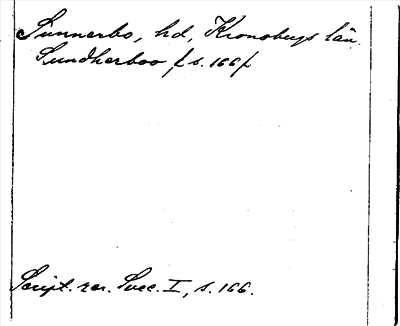 Sunnerbo, hd, Kronobergs län.
Sundherboo / s. 166 /
Script. rer. Svec. I, s. 166.